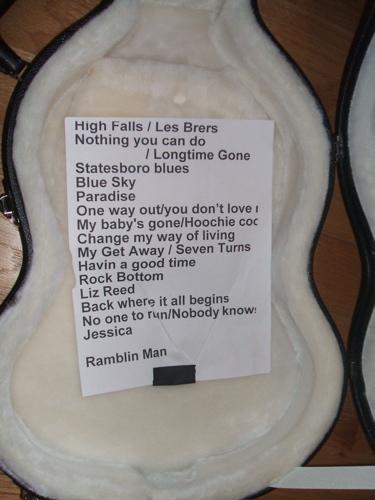 High Falls / Les Brers
Nothing you can do
/ Longtime Gone
Statesboro blues
Blue Sky
Paradise
One way out/you don't love
My baby's gone/Hoochie coo
Change my way of living
My Get Away / Seven Turns
Havin a good time
Rock Bottom
Liz Reed
Back where it all begins
No one to run/Nobody knows
Jessica
Ramblin Man